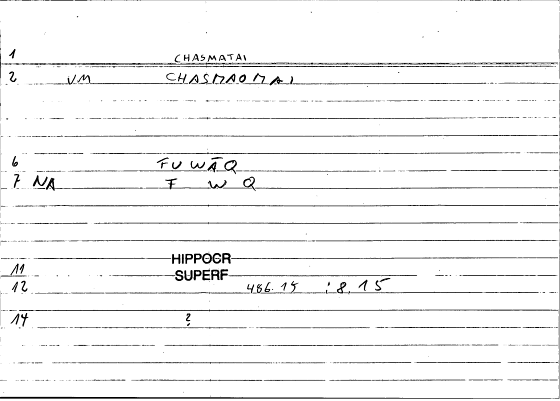 1 CHASMATAI
2 VM CHASMAOMAI
6 FUWĀQ
7 NA F W Q
HIPPOCR
11 SUPERF
12 486.15 :8,15
14 ?